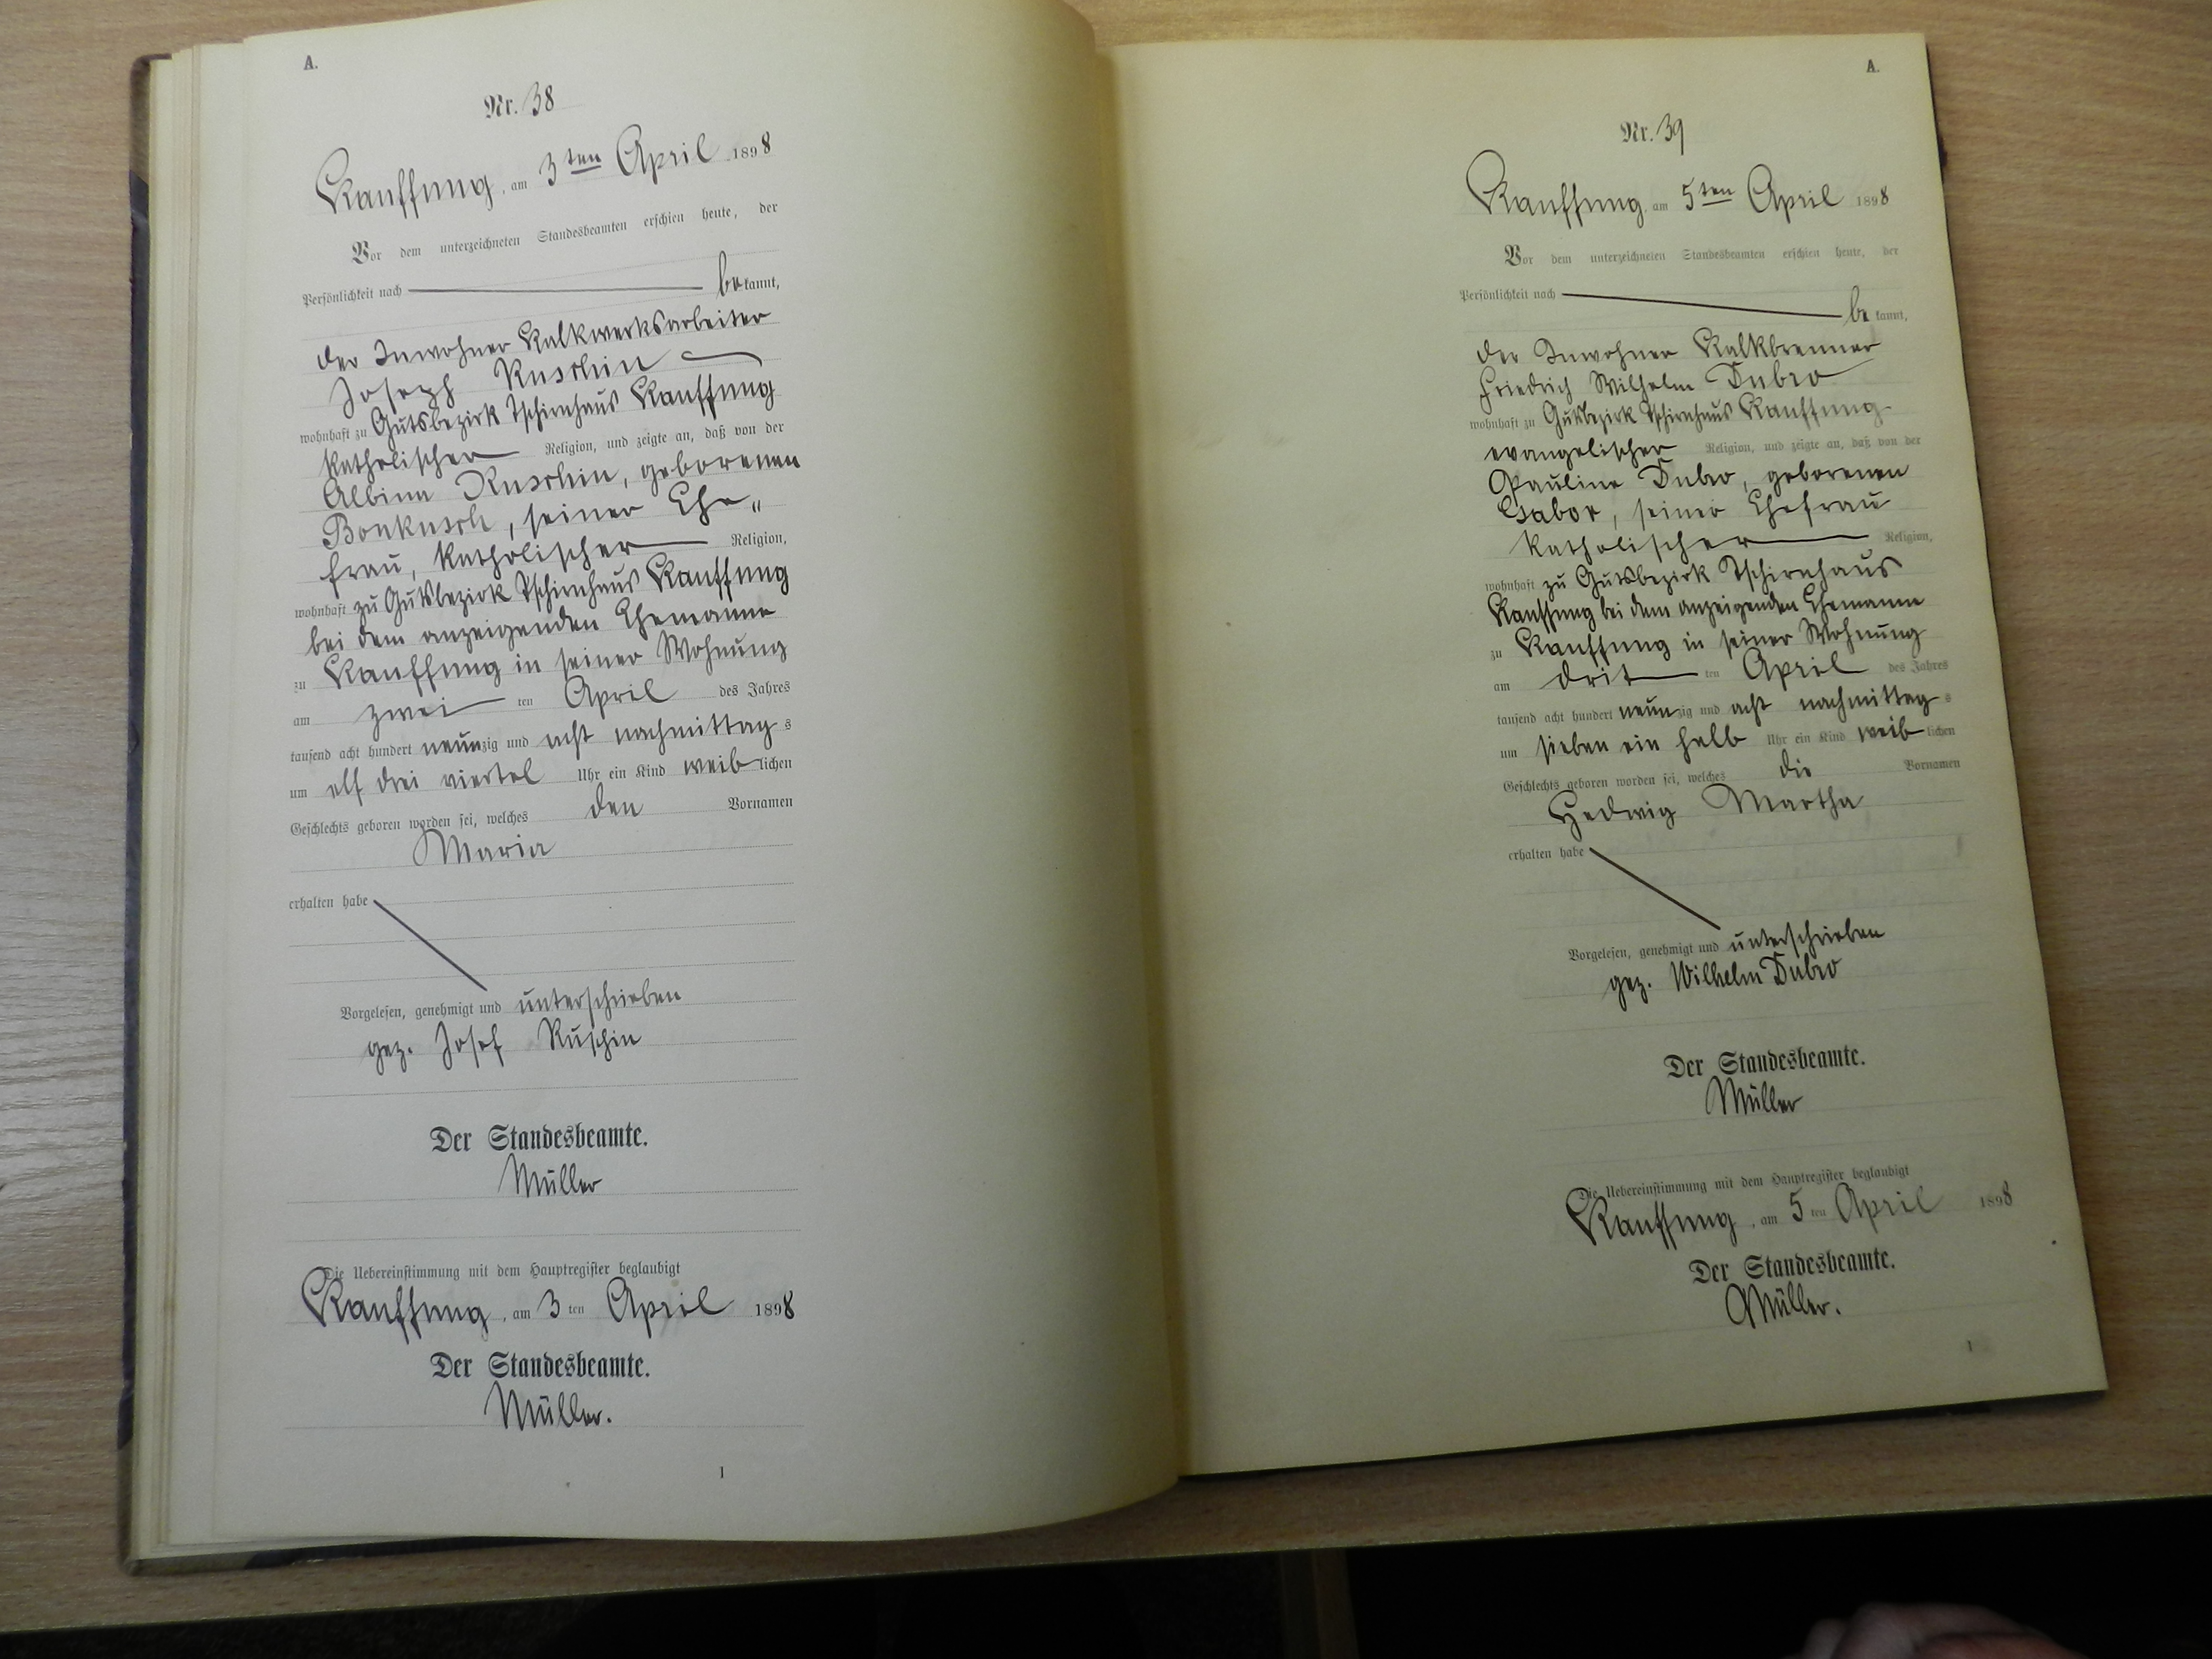 A.
Nr. 38
Kauffung, am 3ten April 1898
Vor dem unterzeichneten Standesbeamten erschien heute, der
Persönlichkeit nach bekannt,
der Inwohner Kalkwerksarbeiter
Joseph Ruschin
wohnhaft zu Gutsbezirk Tschirnhaus Kauffung
katholischer Religion, und zeigte an, daß von der
Albina Ruschin, geborenen
Bonkusch, seiner Ehe„
frau, katholischer Religion,
wohnhaft zu Gutsbezirk Tschirnhaus Kauffung
bei dem anzeigenden Ehemanne
zu Kauffung in seiner Wohnung
am zwei ten April des Jahres
tausend acht hundert neunzig und acht nachmittags
um elf drei viertel Uhr ein Kind weiblichen
Geschlechts geboren worden sei, welches den Vornamen
Maria
erhalten habe
Vorgelesen, genehmigt und unterschrieben
gez. Josef Ruschin
Der Standesbeamte.
Müller
Die Uebereinstimmung mit dem Hauptregister beglaubigt
Kauffung, am 3 ten April 1898
Der Standesbeamte.
Müller.
1
A.
Nr. 39
Kauffung, am 5ten April 1898
Vor dem unterzeichneten Standesbeamten erschien heute, der
Persönlichkeit nach bekannt,
der Inwohner Kalkbrenner
Friedrich Wilhelm Dubro
wohnhaft zu Gutsbezirk Tschirnhaus Kauffung
evangelischer Religion, und zeigte an, daß von der
Pauline Dubro, geborenen
Gabor, seiner Ehefrau
katholischer Religion,
wohnhaft zu Gutsbezirk Tschirnhaus
Kauffung bei dem anzeigenden Ehemanne
zu Kauffung in seiner Wohnung
am drit ten April des Jahres
tausend acht hundert neunzig und acht nachmittags
um sieben ein halb Uhr ein Kind weiblichen
Geschlechts geboren worden sei, welches die Vornamen
Hedwig Martha
erhalten habe
Vorgelesen, genehmigt und unterschrieben
gez. Wilhelm Dubro
Der Standesbeamte.
Müller
Die Uebereinstimmung mit dem Hauptregister beglaubigt
Kauffung, am 5 ten April 1898
Der Standesbeamte.
Müller.
1